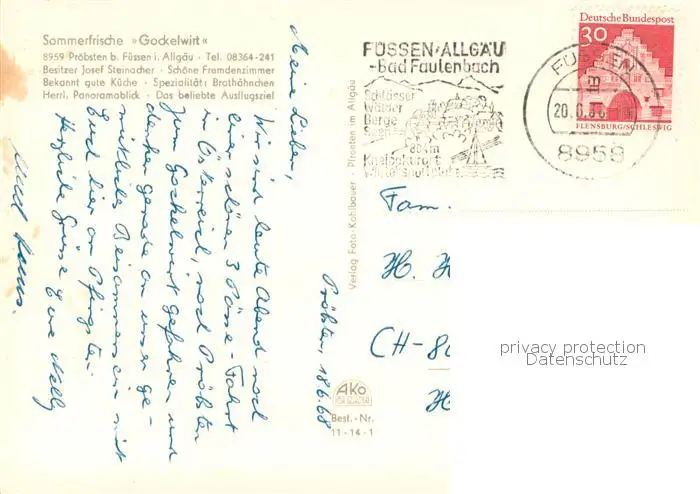 Sommerfrische »Gockelwirt«
8959 Pröbsten b. Füssen i. Allgäu · Tel. 08364-241
Besitzer Josef Steinacher · Schöne Fremdenzimmer
Bekannt gute Küche · Spezialität: Brathähnchen
Herrl. Panoramablick · Das beliebte Ausflugsziel
Pröbsten, 18.6.68
Meine Lieben,
Wir sind heute Abend nach
einer schönen 3 Pässe-Fahrt
in Österreich, nach Pröbsten
zum Gockelwirt gefahren und
denken gerade an unser ge-
mütliche Beisammensein mit
Euch hier an Pfingsten.
Herzliche Grüsse Eure Nelly
und Hans.
Verlag Foto-Kohlbauer · Pfronten im Allgäu
AKO
Best.-Nr.
11-14-1
FÜSSEN-ALLGÄU
-Bad Faulenbach
Schlösser
Wälder
Berge
Seen
804m
Kneippkurort
FÜSSEN
20.6.68
8959
Deutsche Bundespost
30
FLENSBURG/SCHLESWIG
Fam.
H. H
CH-80
H
privacy protection
Datenschutz